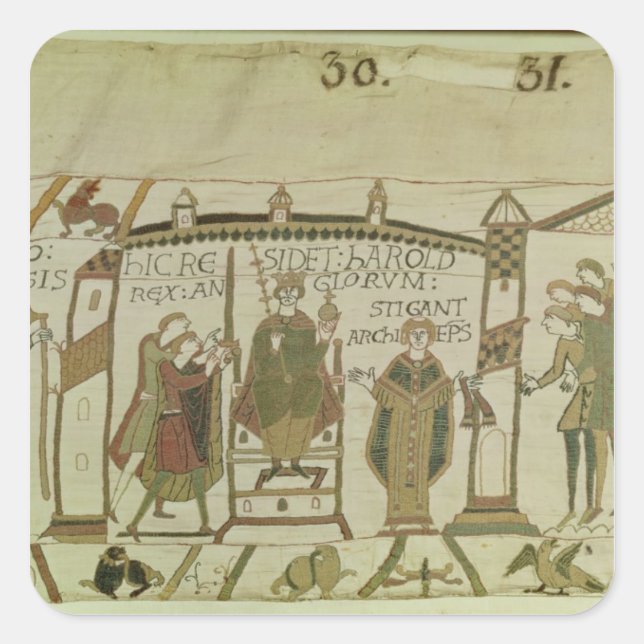 30. 31.
O: HIC RE SIDET: hAROLD
SIS REX: AN GLORVM:
STIGANT
ARChI EPS